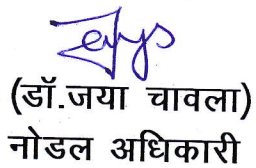 (डॉ.जया चावला)
नोडल अधिकारी